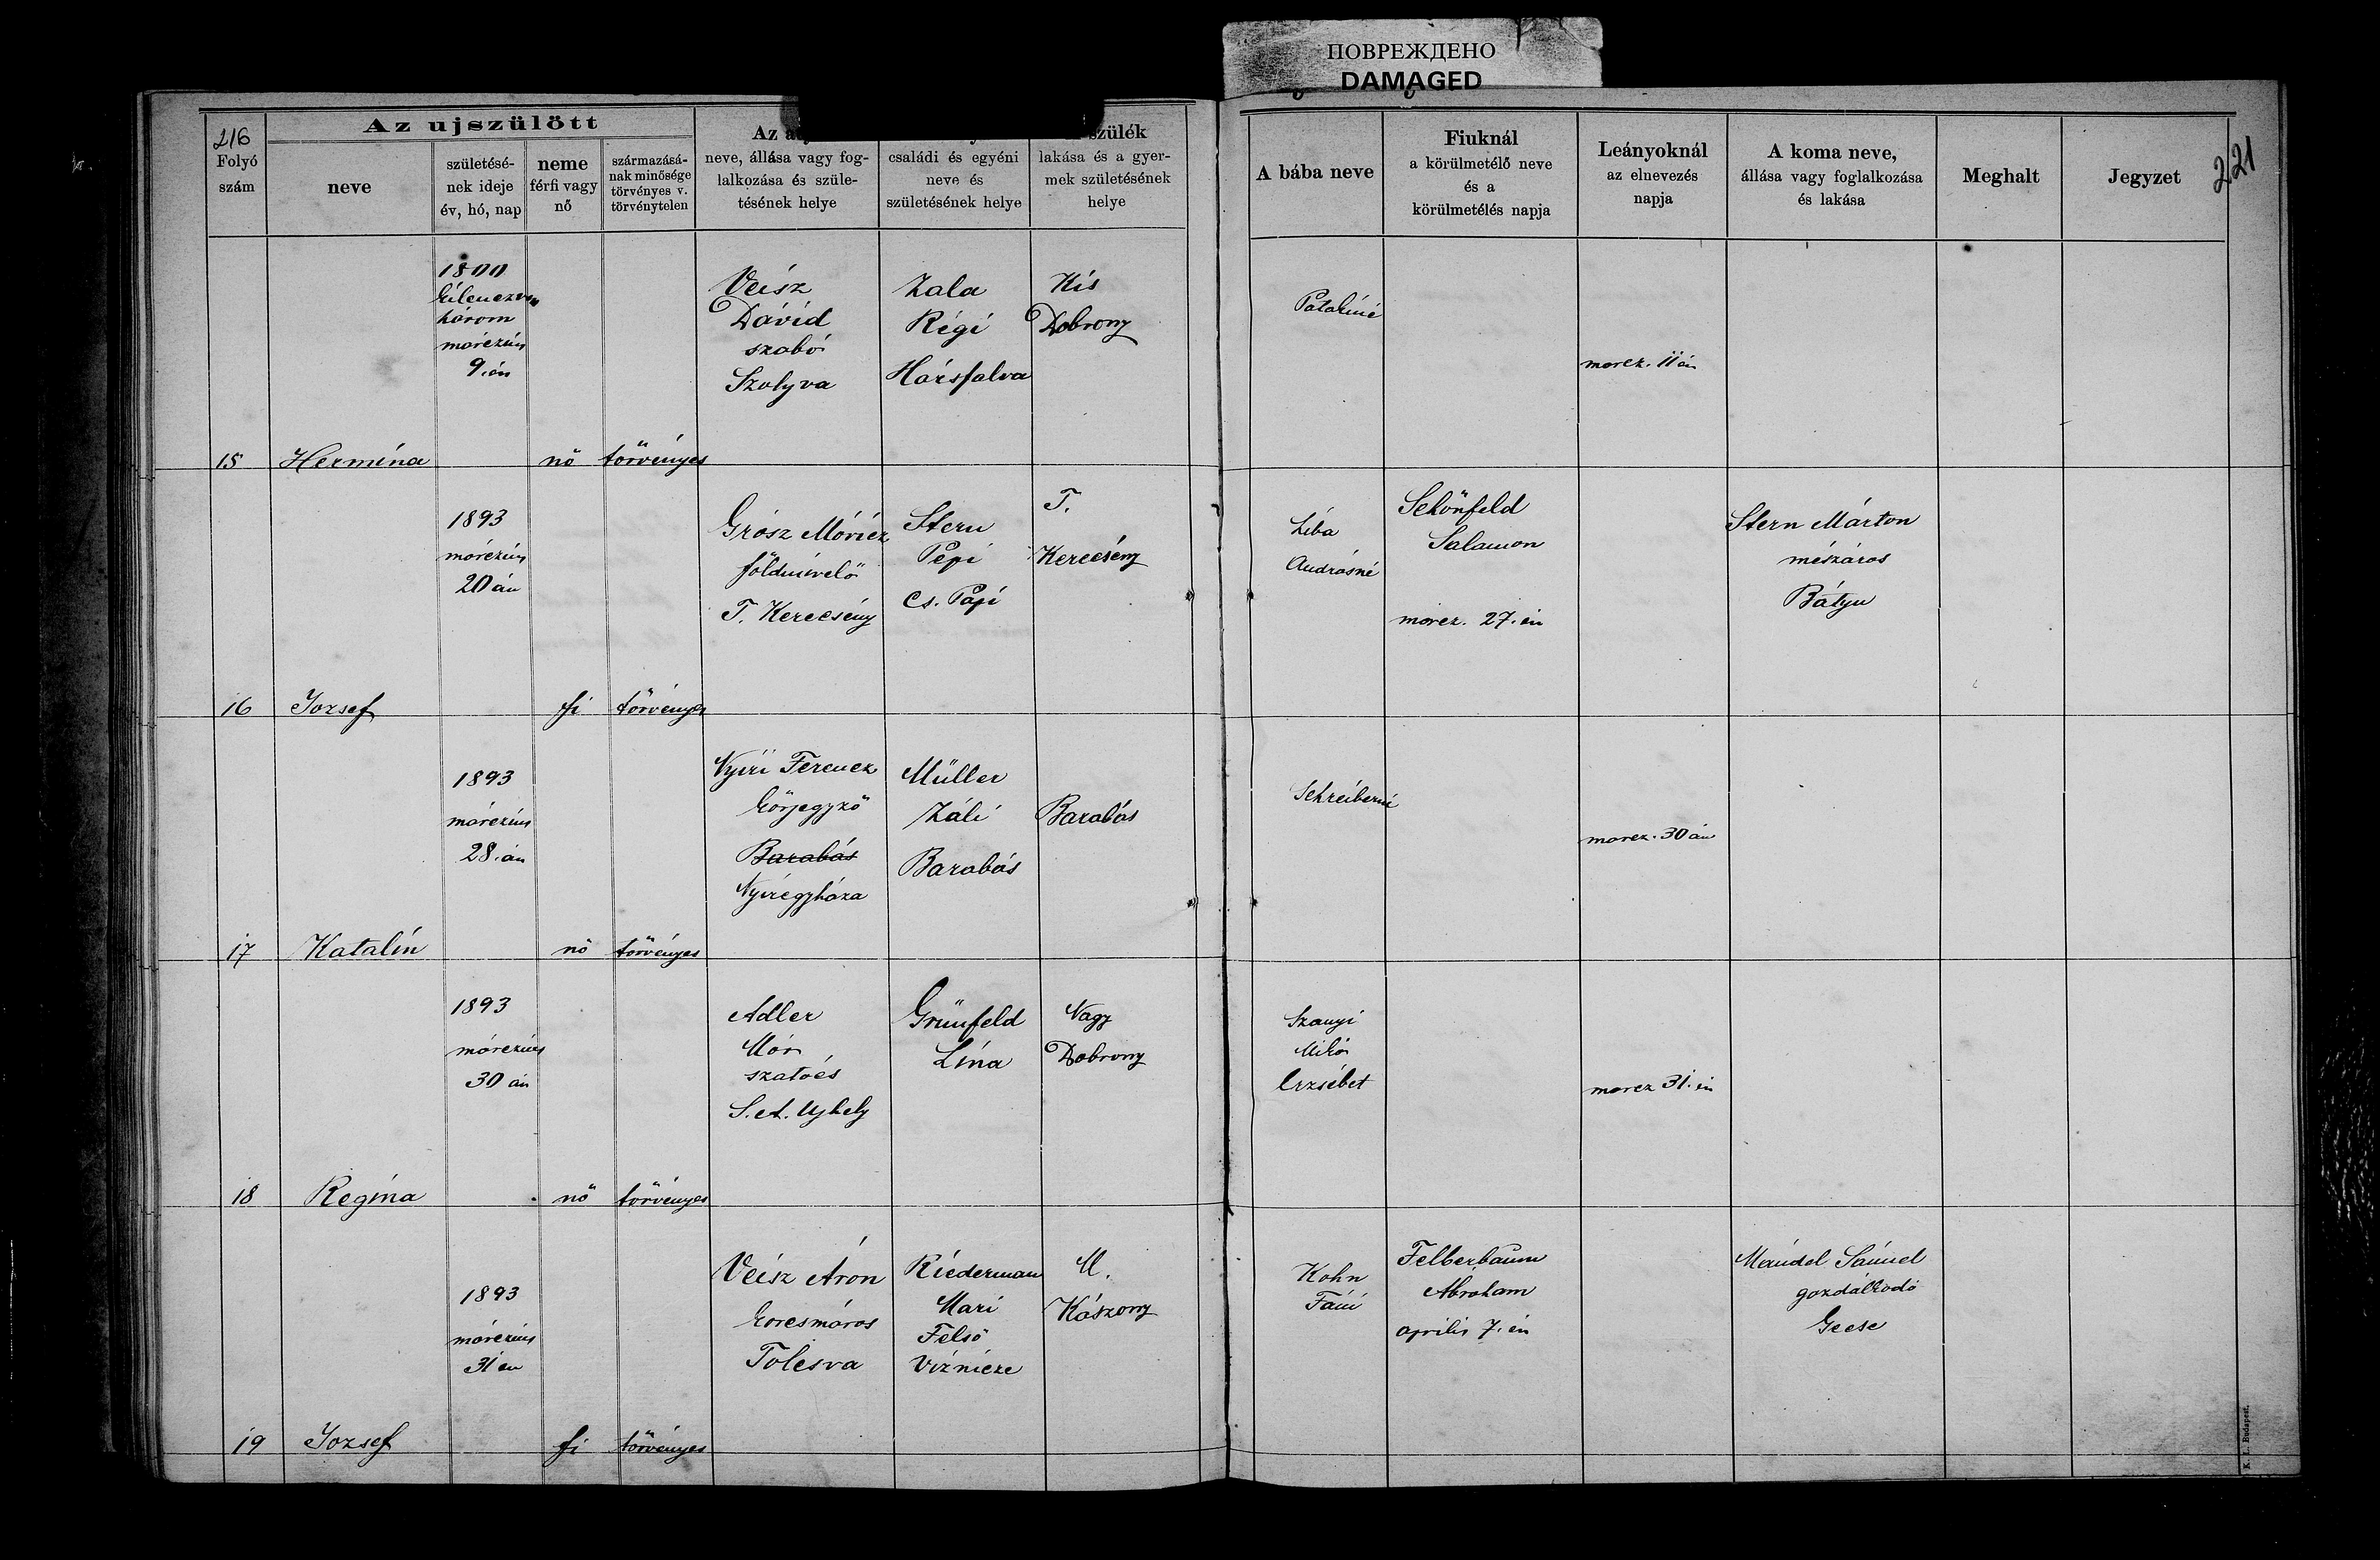 ПОВРЕЖДЕНО
DAMAGED
216
221
Az ujszülött
Folyó szám
neve
születésé-
nek ideje
év, hó, nap
neme
férfi vagy
nő
származásá-
nak minősége
törvényes v.
törvénytelen
Az a
neve, állása vagy fog-
lalkozása és szüle-
tésének helye
családi és egyéni
neve és
születésének helye
szülék
lakása és a gyer-
mek születésének
helye
A bába neve
Fiuknál
a körülmetélő neve
és a
körülmetélés napja
Leányoknál
az elnevezés
napja
A koma neve,
állása vagy foglalkozása
és lakása
Meghalt
Jegyzet
15
Hermina
1800
kilenczven
három
márczius
9.én
nő
törvényes
Veisz
Dávid
szabó
Szolyva
Zala
Régi
Hársfalva
Kis
Dobrony
Patakiné
marcz. 11 én
16
Jozsef
1893
márczius
20 án
fi
törvényes
Grósz Móricz
földmivelő
T. Kerecsény
Stern
Pepi
Cs. Papi
T.
Kerecsény
Liba
Andrásné
Schönfeld
Salamon
marcz. 27. én
Stern Márton
mészáros
Bátyu
17
Katalin
1893
márczius
28. án
nő
törvényes
Nyiri Ferencz
körjegyző
Barabás
Nyiregyháza
Müller
Záli
Barabás
Barabás
Schreiberné
marcz. 30 án
18
Regina
1893
márczius
30 án
nő
törvényes
Adler
Mór
szatócs
S. A. Ujhely
Grünfeld
Lina
Nagy
Dobrony
Szanyi
Mikó
Erzsébet
marcz 31. én
19
Jozsef
1893
márczius
31 én
fi
törvényes
Veisz Áron
korcsmáros
Tolcsva
Riederman
Mari
Felső
Viznicze
M.
Kászony
Kohn
Fáni
Felberbaum
Abraham
april 7. én
Mándel Sámuel
gazdálkodó
Gecse
K. L. Budapest.